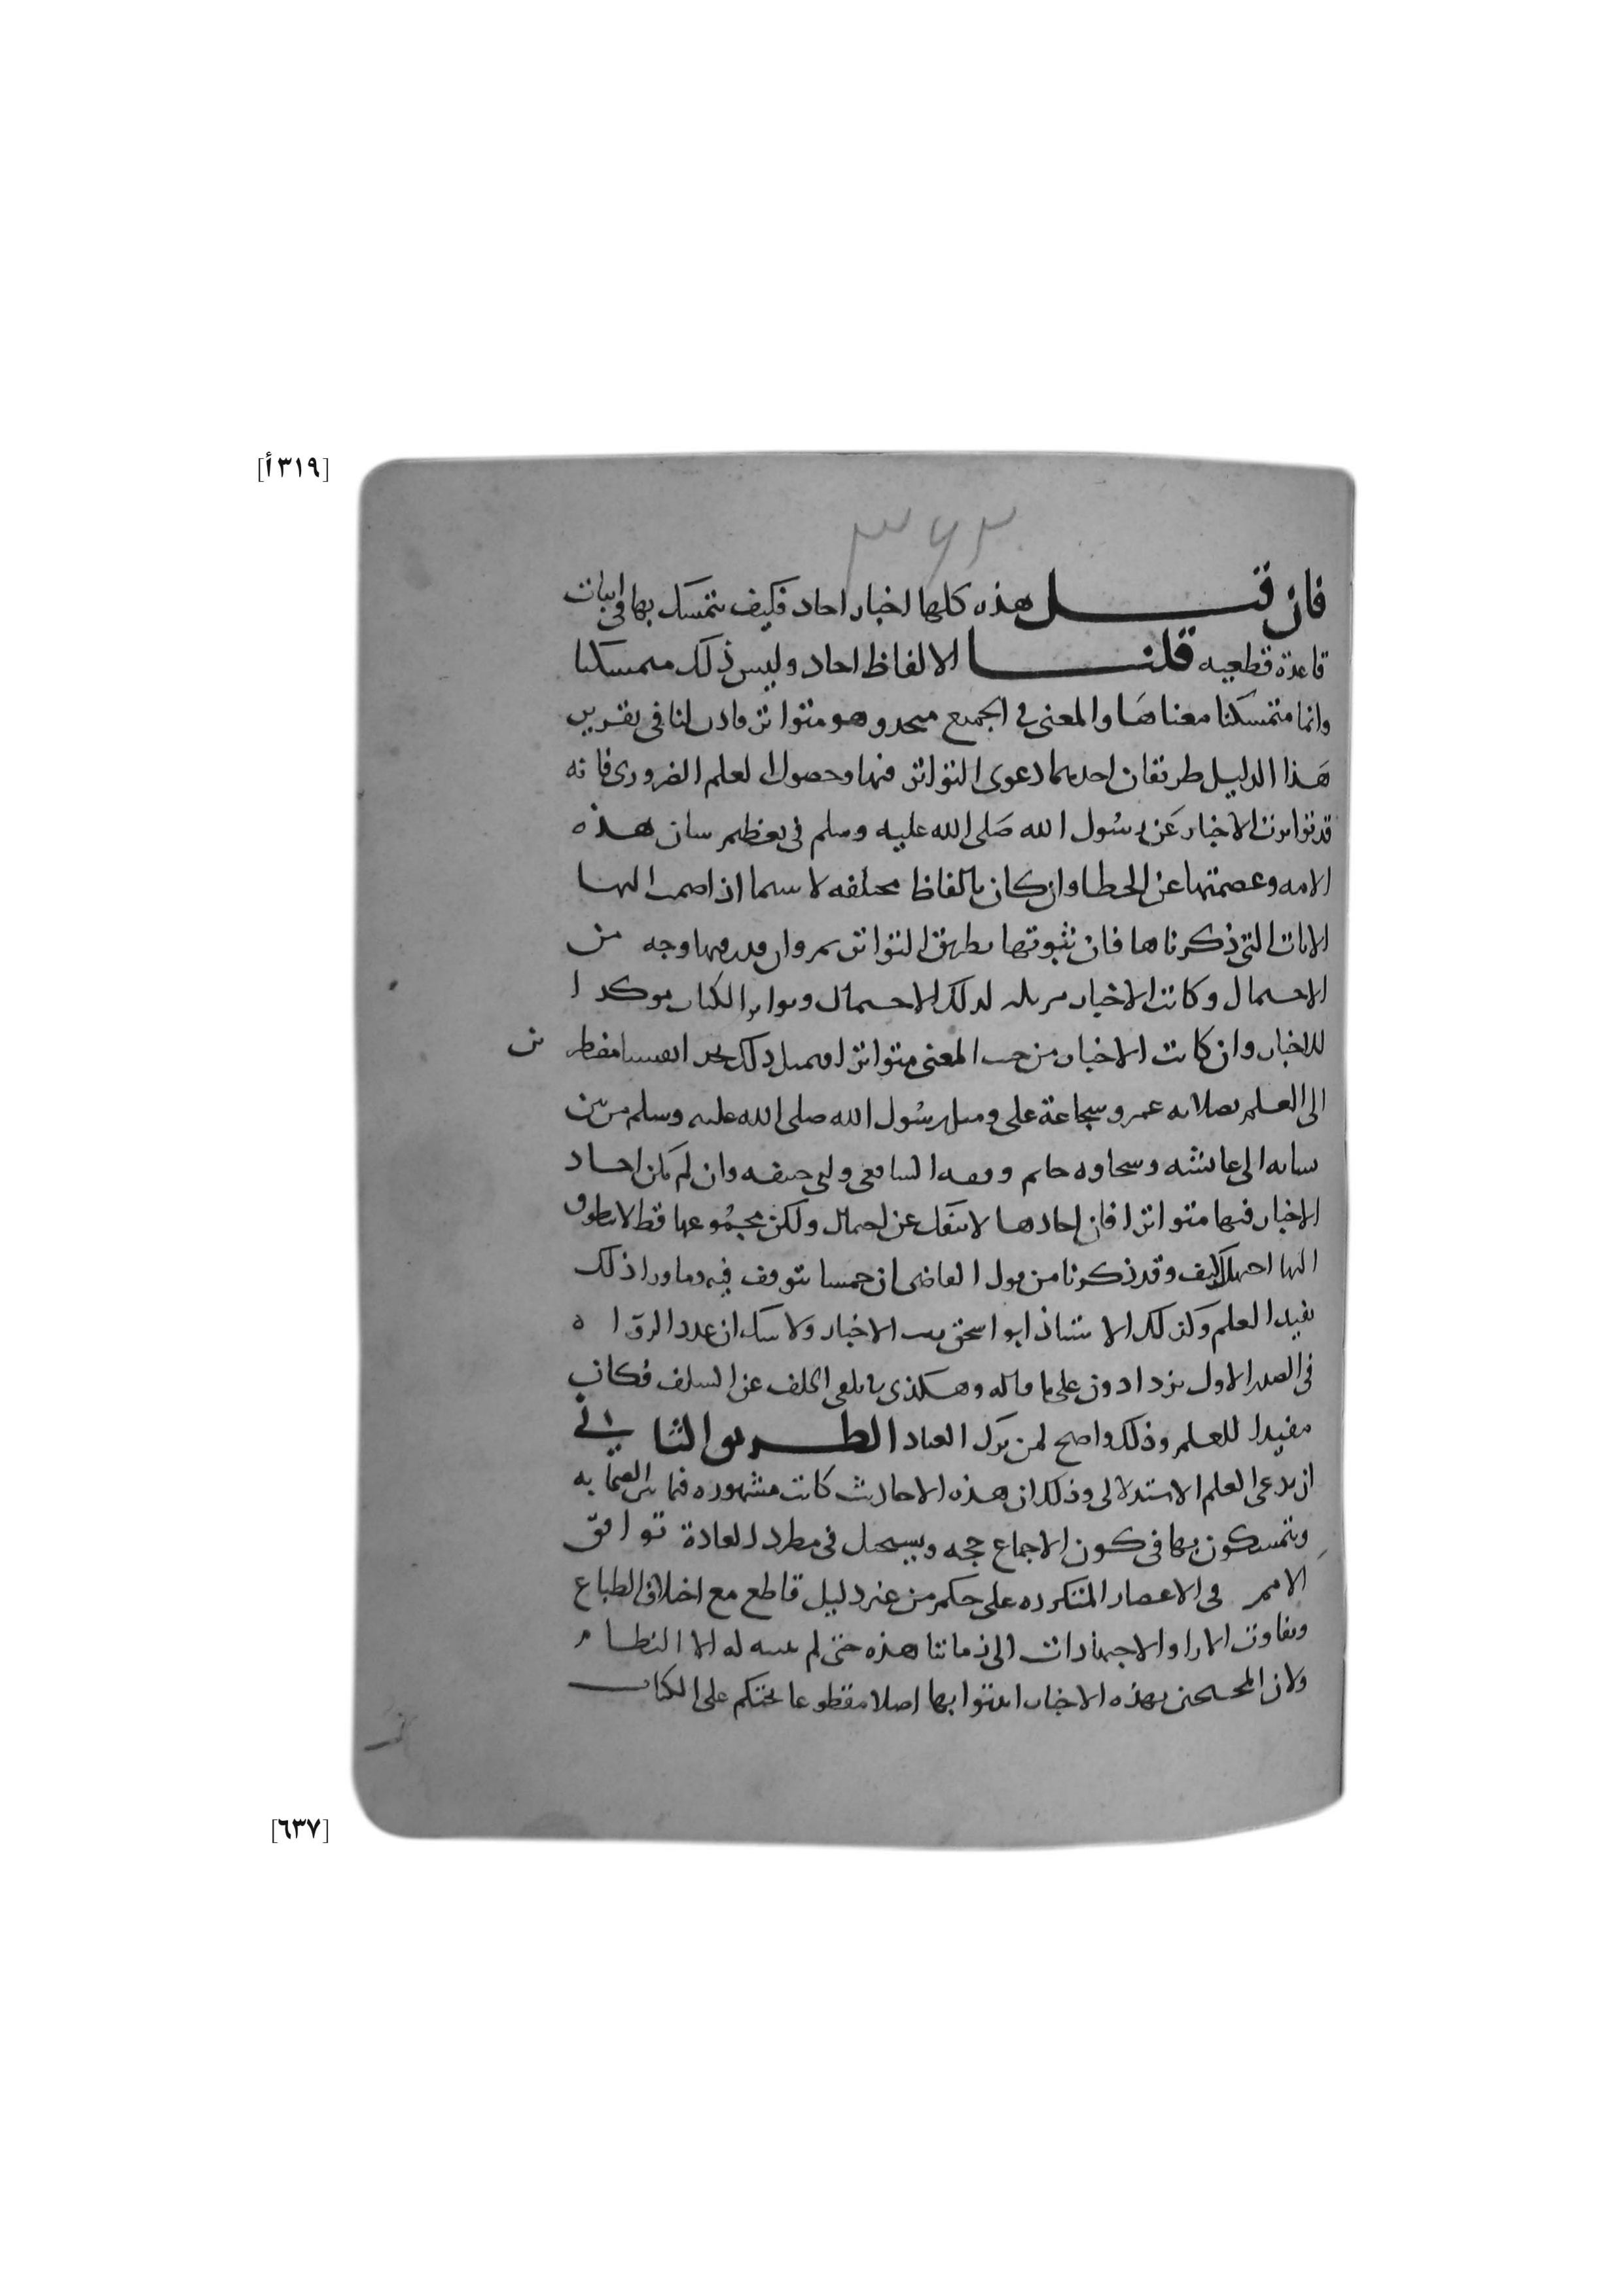 [٣١٩أ]
٣٦٣
فان قيل هذه كلها اخبار احاد فكيف نتمسك بها في اثبات
قاعدة قطعيه قلنا الالفاظ احاد وليس ذلك متمسكنا
وانما متمسكنا معناها والمعنى في الجميع متحد وهو متواتر فاذن لنا في تقرير
هذا الدليل طريقان احدهما دعوى التواتر فيها وحصول العلم الضروري فانه
قد تواترت الاخبار عن رسول الله صلى الله عليه وسلم في تعظيم شان هذه
الامه وعصمتها عن الخطا وان كان بالفاظ مختلفه لا سيما اذا ضمت اليها
الايات التي ذكرناها فان ثبوتها بطريق التواتر وان قدر فيها وجه من
الاحتمال وكانت الاخبار مزيله لذلك الاحتمال وتواتر الكتاب موكدا
للاخبار وان كانت الاخبار من حيث المعنى متواترا فبمثل ذلك نجد انفسنا مضطرين
الى العلم بصلابه عمر وشجاعة علي وميل رسول الله صلى الله عليه وسلم من بين
نسايه الى عائشه وسخاوه حاتم وفقه الشافعي وابي حنيفه وان لم يكن احاد
الاخبار فيها متواترا فان احادها لا ينفك عن احتمال ولكن مجموعها قط لا يتطرق
اليها احتمال كيف وقد ذكرنا من قول القاضي ان خمسا نتوقف فيه وما ورا ذلك
يفيد العلم وكذلك الاستاذ ابو اسحق الاخبار ولا شك ان عدد الرواه
في الصدر الاول يزدادون على ما قاله وهكذى يا تلقى الخلف عن السلف فكان
مفيدا للعلم وذلك واضح لمن ترك العناد الطريق الثاني
ان ندعي العلم الاستدلالي وذلك ان هذه الاحاديث كانت مشهوره فيما بين الصحابه
ويتمسكون بها في كون الاجماع حجه ويستحيل في مطرد العادة توافق
الامم في الاعصار المتكرره على حكم من غير دليل قاطع مع اختلاف الطباع
وتفاوت الارا والاجتهادات الى زماننا هذه حتى لم يتنبه له الا النظام
ولان المحتجين بهذه الاخبار اثبتوا بها اصلا مقطوعا يحتكم على الكتاب
[٦٣٧]